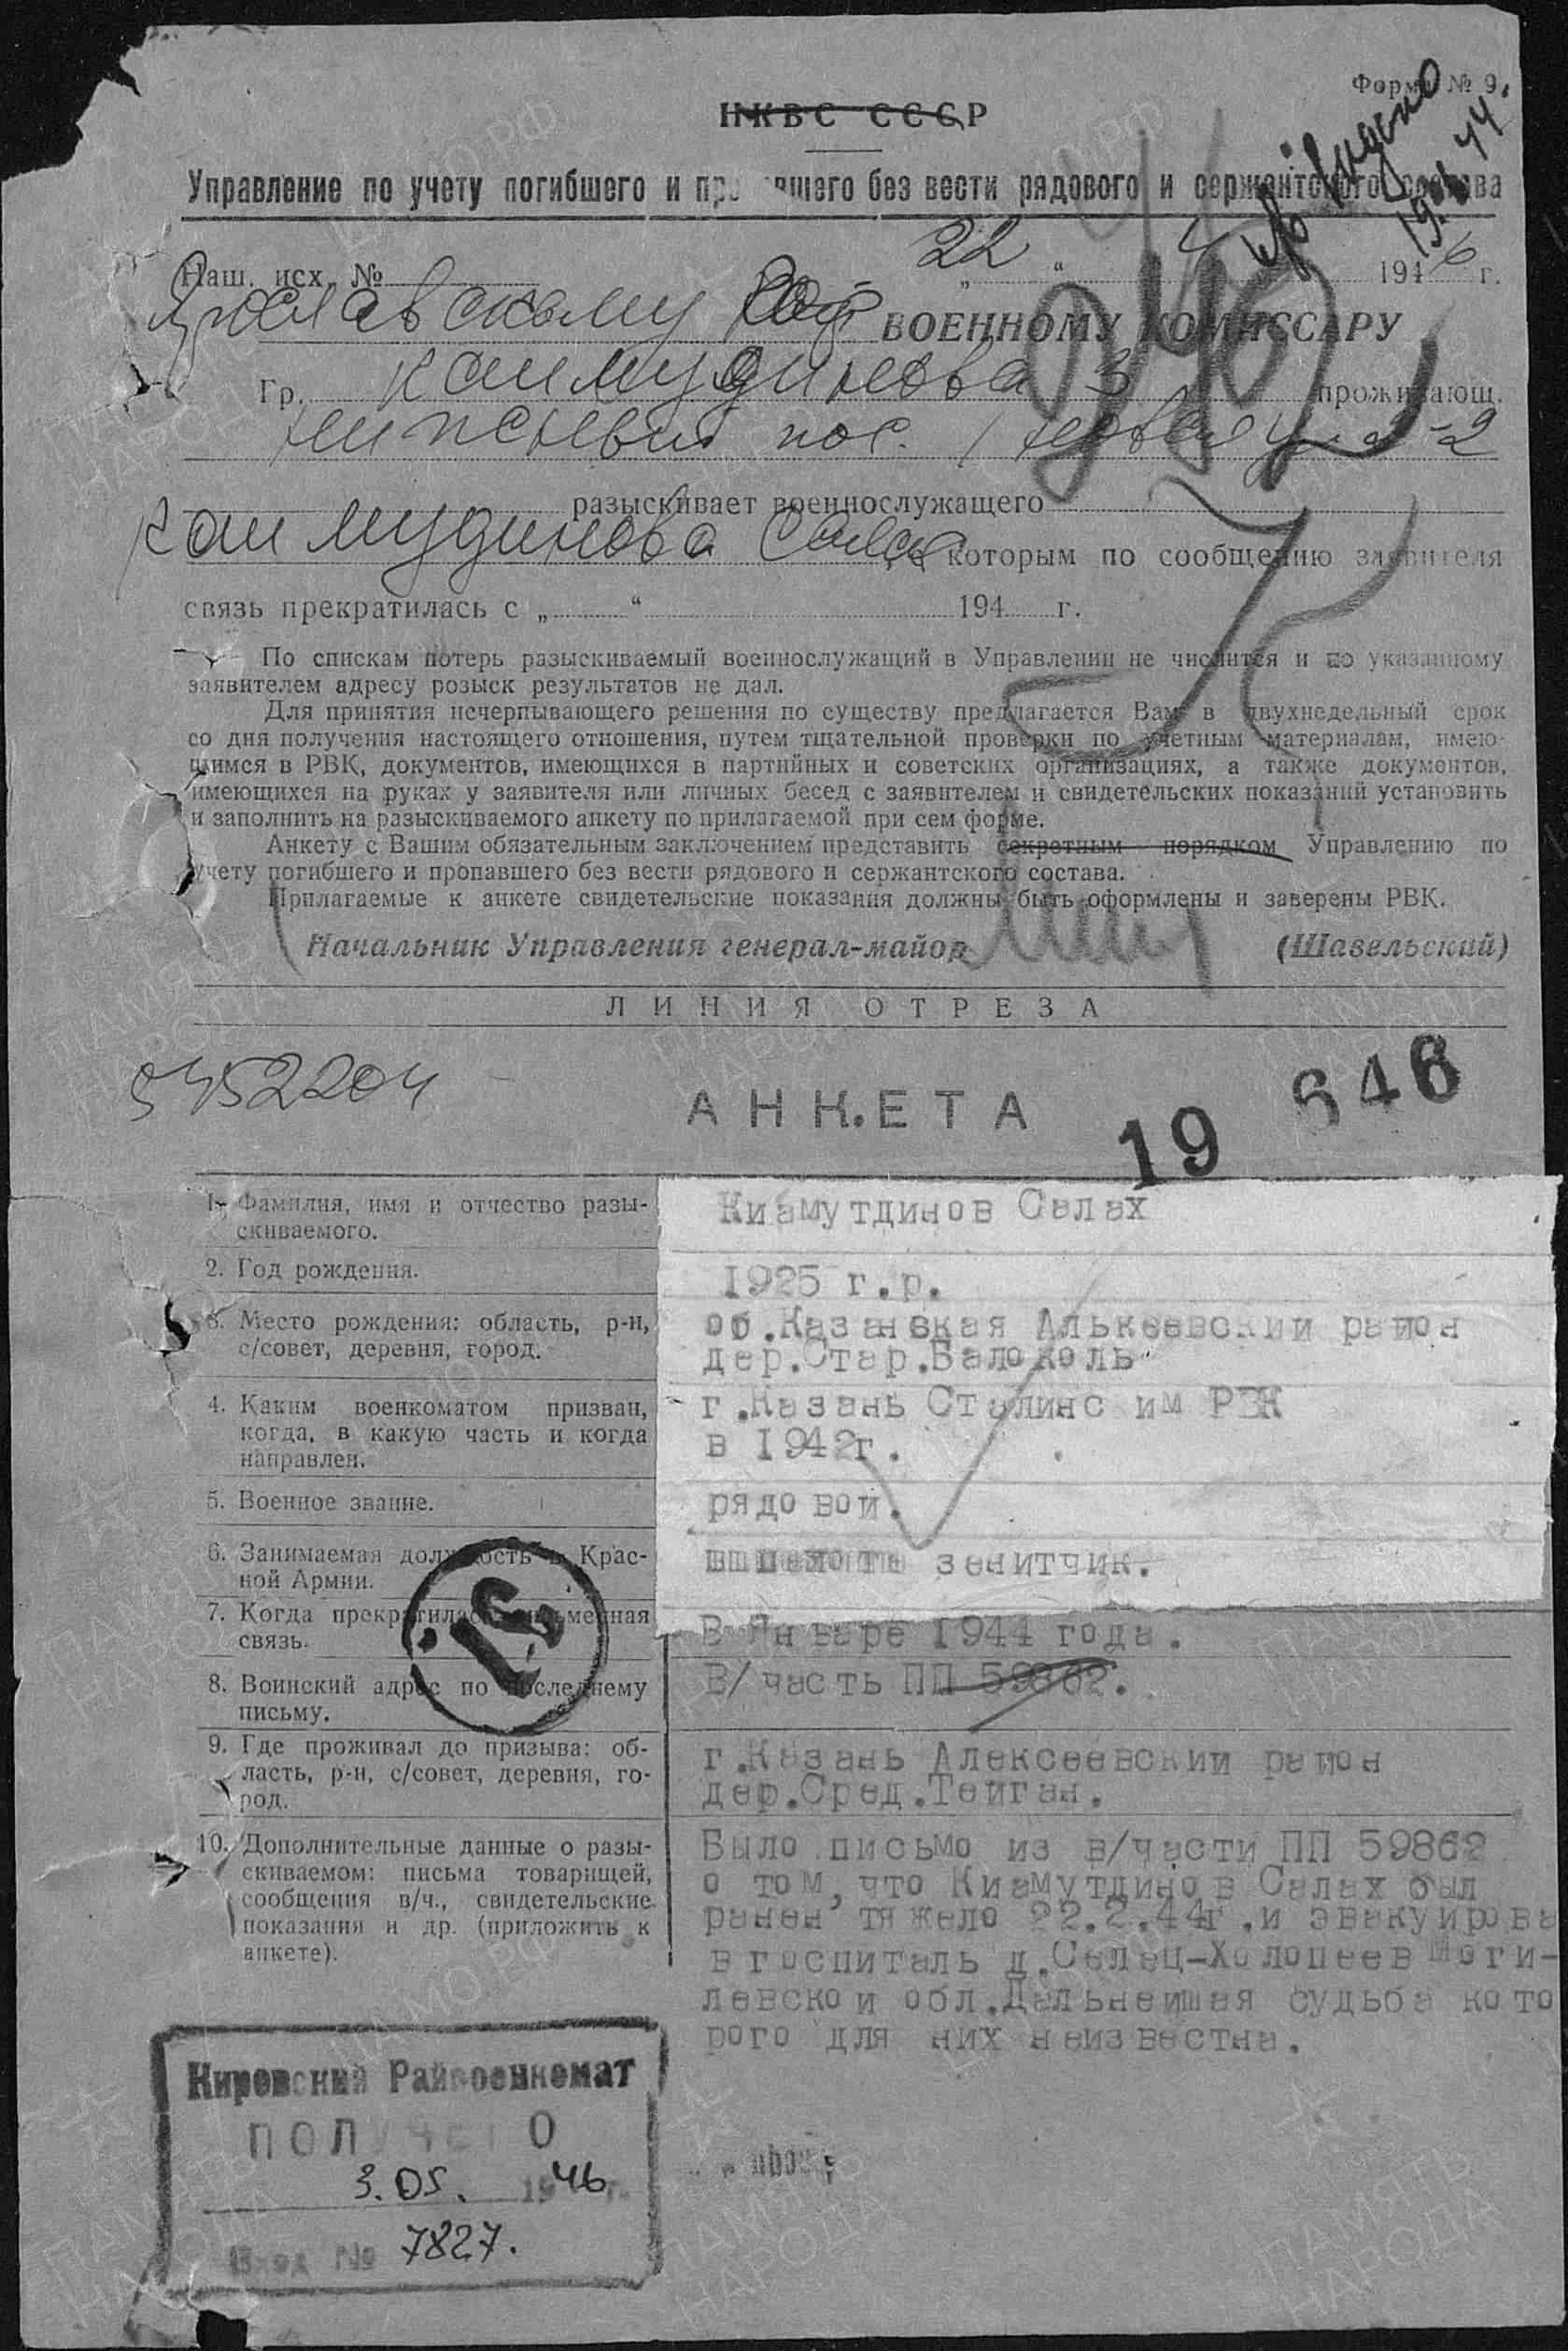 Форма № 9.
НКВС СССР
Управление по учету погибшего и пр вшего без вести рядового и сержантского состава
Наш. исх. № 22 " 4 1946 г.
Ярославскому ВОЕННОМУ КОМИССАРУ
Гр. Каимудинова З проживающ.
пос.
разыскивает военнослужащего
Каимудинова которым по сообщению заявителя
связь прекратилась с „ “ 194 г.
По спискам потерь разыскиваемый военнослужащий в Управлении не числится и по указанному
заявителем адресу розыск результатов не дал.
Для принятия исчерпывающего решения по существу предлагается Вам в двухнедельный срок
со дня получения настоящего отношения, путем тщательной проверки по учетным материалам, имею-
щимся в РВК, документов, имеющихся в партийных и советских организациях, а также документов,
имеющихся на руках у заявителя или личных бесед с заявителем и свидетельских показаний установить
и заполнить на разыскиваемого анкету по прилагаемой при сем форме.
Анкету с Вашим обязательным заключением представить секретным порядком Управлению по
учету погибшего и пропавшего без вести рядового и сержантского состава.
Прилагаемые к анкете свидетельские показания должны быть оформлены и заверены РВК.
Начальник Управления генерал-майор (Шавельский)
ЛИНИЯ ОТРЕЗА
АНКЕТА
19 646
1. Фамилия, имя и отчество разы-
скиваемого.
Киамутдинов Салах
2. Год рождения.
1925 г.р.
3. Место рождения: область, р-н,
с/совет, деревня, город.
об.Казанская Алькеевский район
дер.Стар.Балоколь
4. Каким военкоматом призван,
когда, в какую часть и когда
направлен.
г.Казань Сталинс им РВК
в 1942г.
5. Военное звание.
рядовой.
6. Занимаемая должность в Крас-
ной Армии.
зенитчик.
7. Когда прекратилась письменная
связь.
В Январе 1944 года.
8. Воинский адрес по последнему
письму.
В/часть ПП 59862.
9. Где проживал до призыва: об-
ласть, р-н, с/совет, деревня, го-
род.
г.Казань Алексеевский район
дер.Сред.Тейган.
10. Дополнительные данные о разы-
скиваемом: письма товарищей,
сообщения в/ч., свидетельские
показания и др. (приложить к
анкете).
Было письмо из в/части ПП 59862
о том, что Киамутдинов Салах был
ранен тяжело 22.2.44г.и эвакуирова
в госпиталь д.Селец-Холопеев Моги-
левской обл.Дальнейшая судьба кото
рого для них неизвестна.
Кировский Райвоенкомат
ПОЛУЧЕНО
3.05. 1946 г.
Вход № 7827.